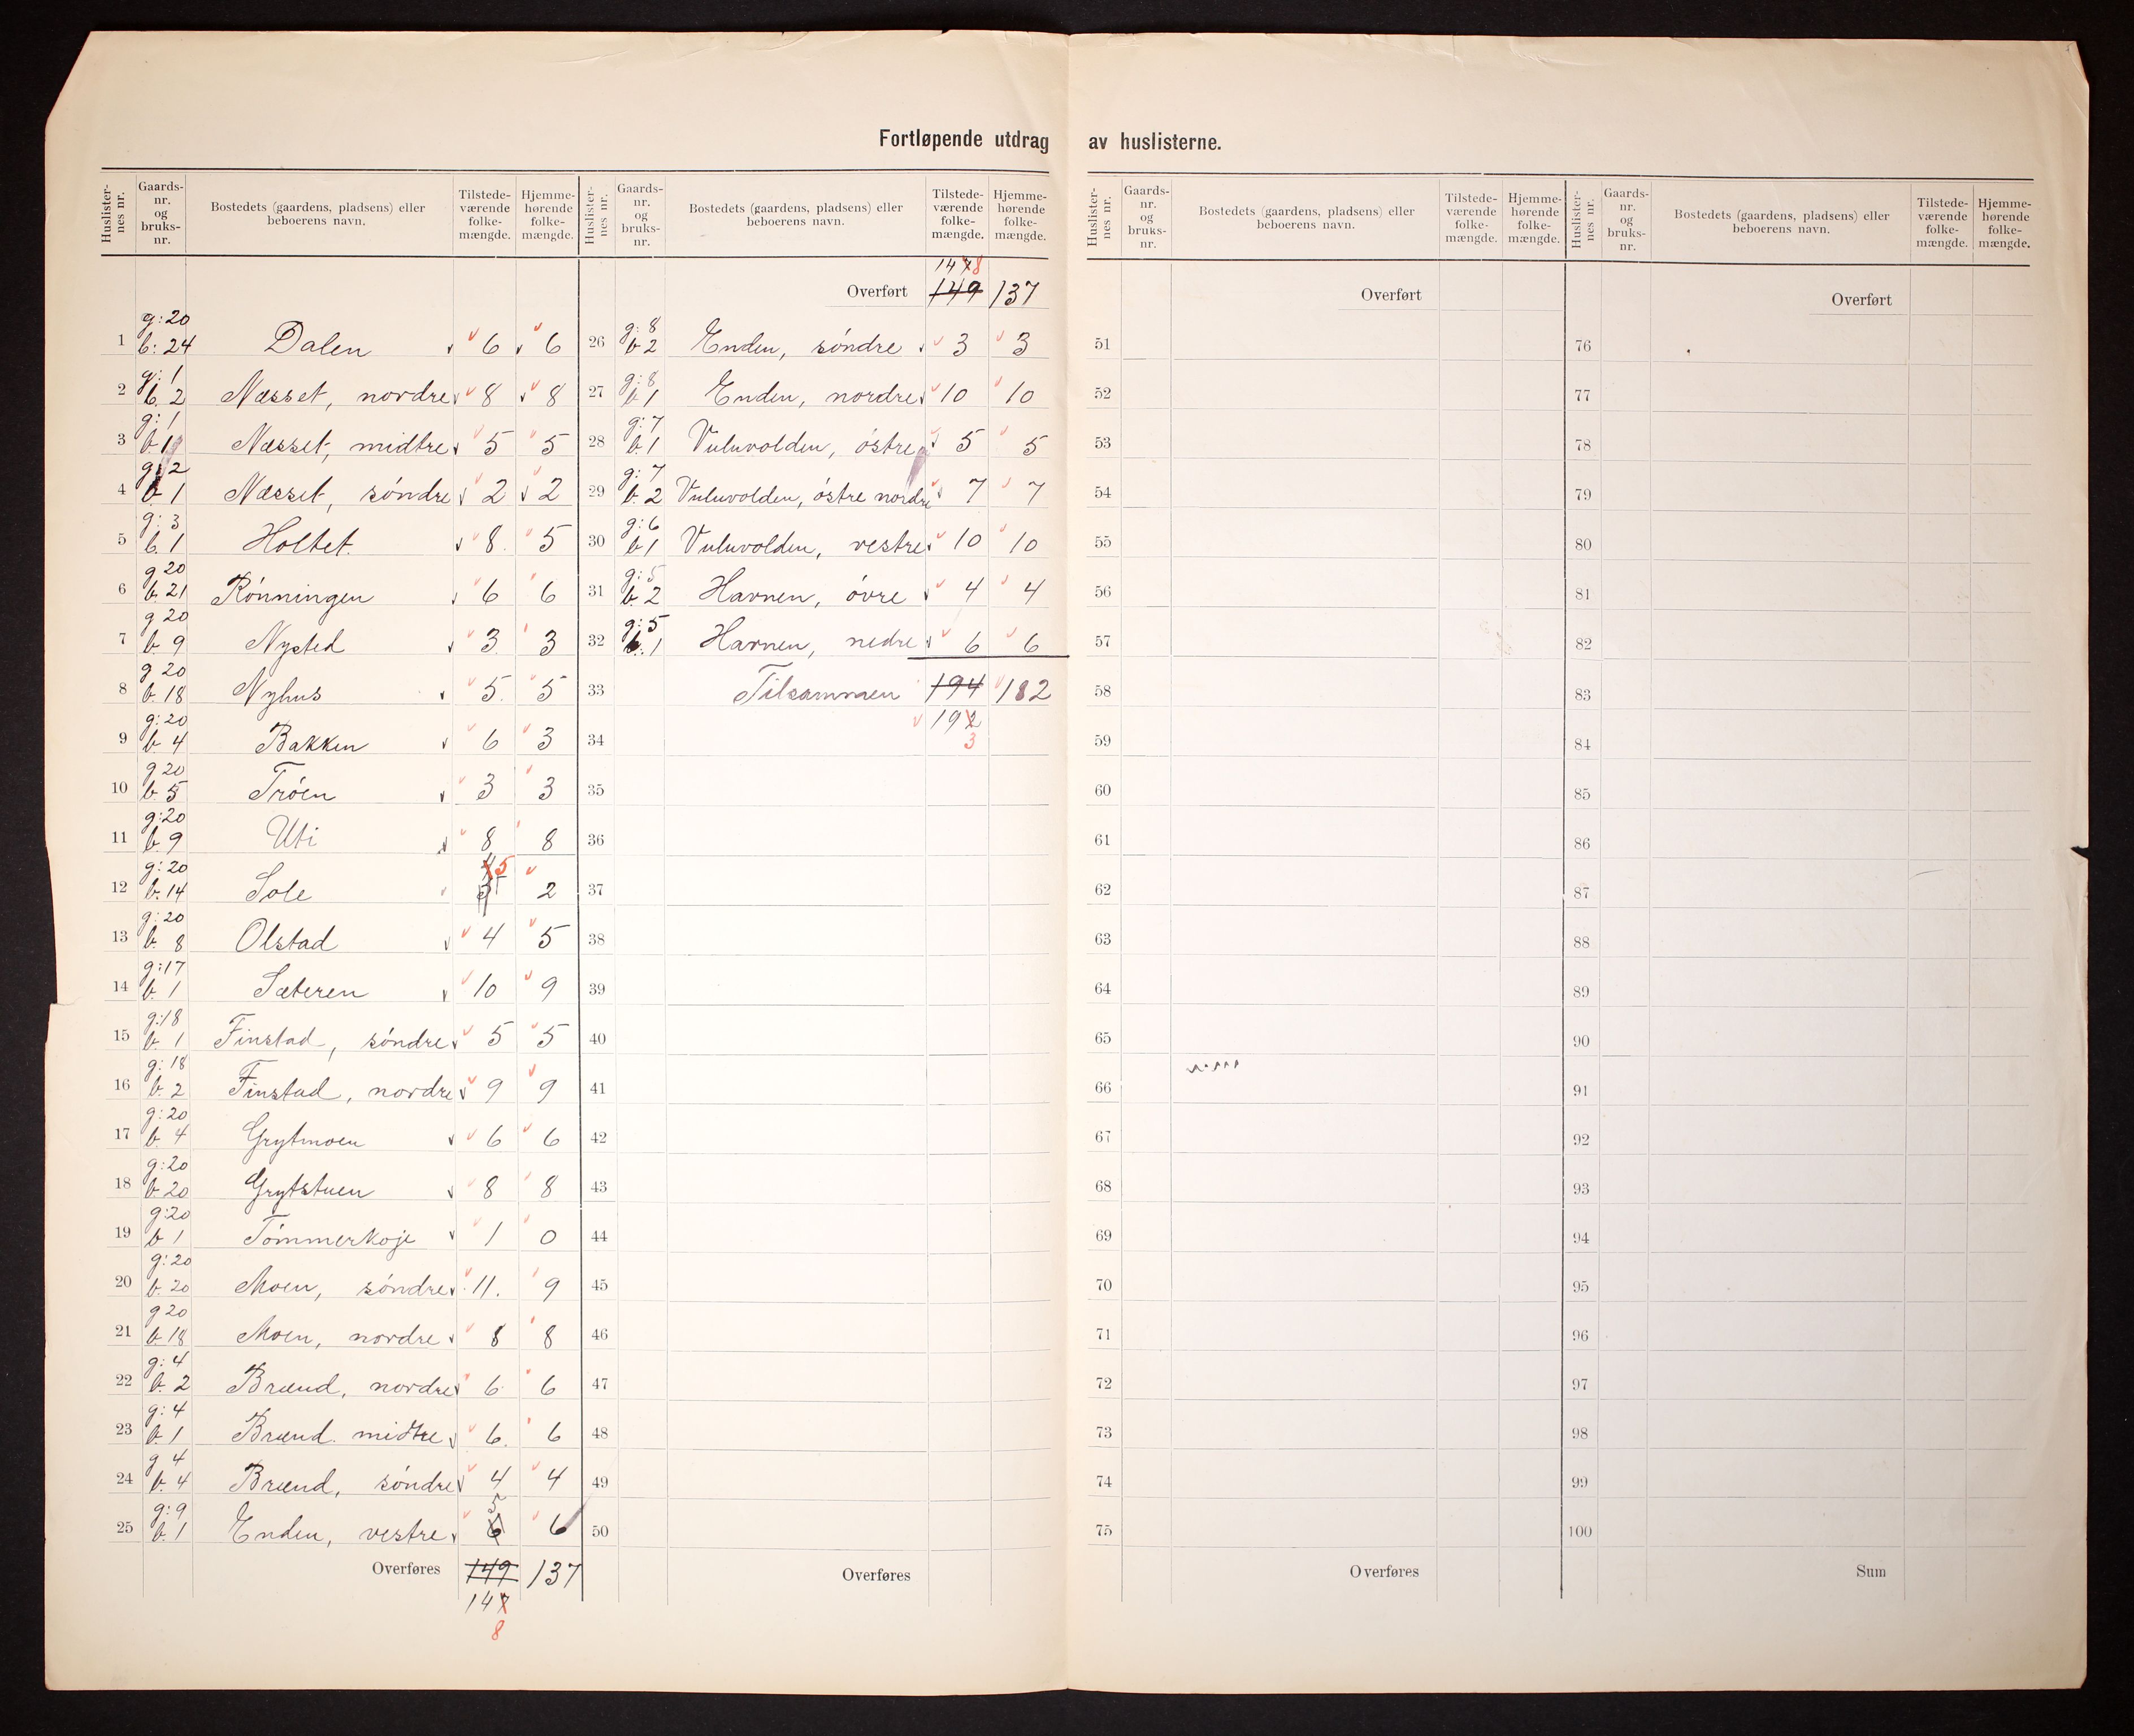 Fortløpende utdrag av huslisterne.
Huslisternes nr. Gaards-nr. og bruks-nr. Bostedets (gaardens, pladsens) eller beboerens navn. Tilstede-værende folke-mængde. Hjemme-hørende folke-mængde.
1 g:20 b:24 Dalen 6 6
2 g:1 b.2 Næsset, nordre 8 8
3 g:1 b.1 Næsset, midtre 5 5
4 g:2 b.1 Næsset, søndre 2 2
5 g:3 b.1 Holtet. 8. 5
6 g 20 b.21 Rønningen 6 6
7 g 20 b.9 Nysted 3. 3
8 g 20 b.18 Nyhus 5. 5
9 g:20 b.4 Bakken 6 3
10 g 20 b.5 Trøen 3 3
11 g:20 b.9 Uti 8 8
12 g:20 b.14 Sole 5 2
13 g:20 b.8 Olstad 4 5
14 g:17 b.1 Sæteren 10 9
15 g:18 b.1 Finstad, søndre 5 5
16 g:18 b.2 Finstad, nordre 9 9
17 g:20 b.4 Grytmoen 6 6
18 g:20 b.20 Grytstuen 8 8
19 g:20 b 1 Tømmerkoje 1 0
20 g:20 b.20 Moen, søndre 11. 9
21 g 20 b.18 Moen, nordre 8 8
22 g:4 b.2 Brænd, nordre 6 6
23 g:4 b.1 Brænd. midtre 6. 6
24 g 4 b.4 Brænd, søndre 4 4
25 g:9 b.1 Enden, vestre 6 5 6
Overføres 149 137
147
8
Huslisternes nr. Gaards-nr. og bruks-nr. Bostedets (gaardens, pladsens) eller beboerens navn. Tilstede-værende folke-mængde. Hjemme-hørende folke-mængde.
147 8
Overført 149 137
26 g:8 b 2 Enden, søndre 3 3
27 g:8 b 1 Enden, nordre 10 10
28 g:7 b.1 Vuluvolden, østre 5 5
29 g:7 b.2 Vuluvolden, østre nordre 7 7
30 g:6 b 1 Vuluvolden, vestre 10 10
31 g:5 b.2 Havnen, øvre 4 4
32 g:5 b.1 Havnen, nedre 6 6
33 Tilsammen 194 182
192
34 3
35
36
37
38
39
40
41
42
43
44
45
46
47
48
49
50
Overføres
Huslisternes nr. Gaards-nr. og bruks-nr. Bostedets (gaardens, pladsens) eller beboerens navn. Tilstede-værende folke-mængde. Hjemme-hørende folke-mængde.
Overført
51
52
53
54
55
56
57
58
59
60
61
62
63
64
65
66
67
68
69
70
71
72
73
74
75
Overføres
Huslisternes nr. Gaards-nr. og bruks-nr. Bostedets (gaardens, pladsens) eller beboerens navn. Tilstede-værende folke-mængde. Hjemme-hørende folke-mængde.
Overført
76
77
78
79
80
81
82
83
84
85
86
87
88
89
90
91
92
93
94
95
96
97
98
99
100
Sum